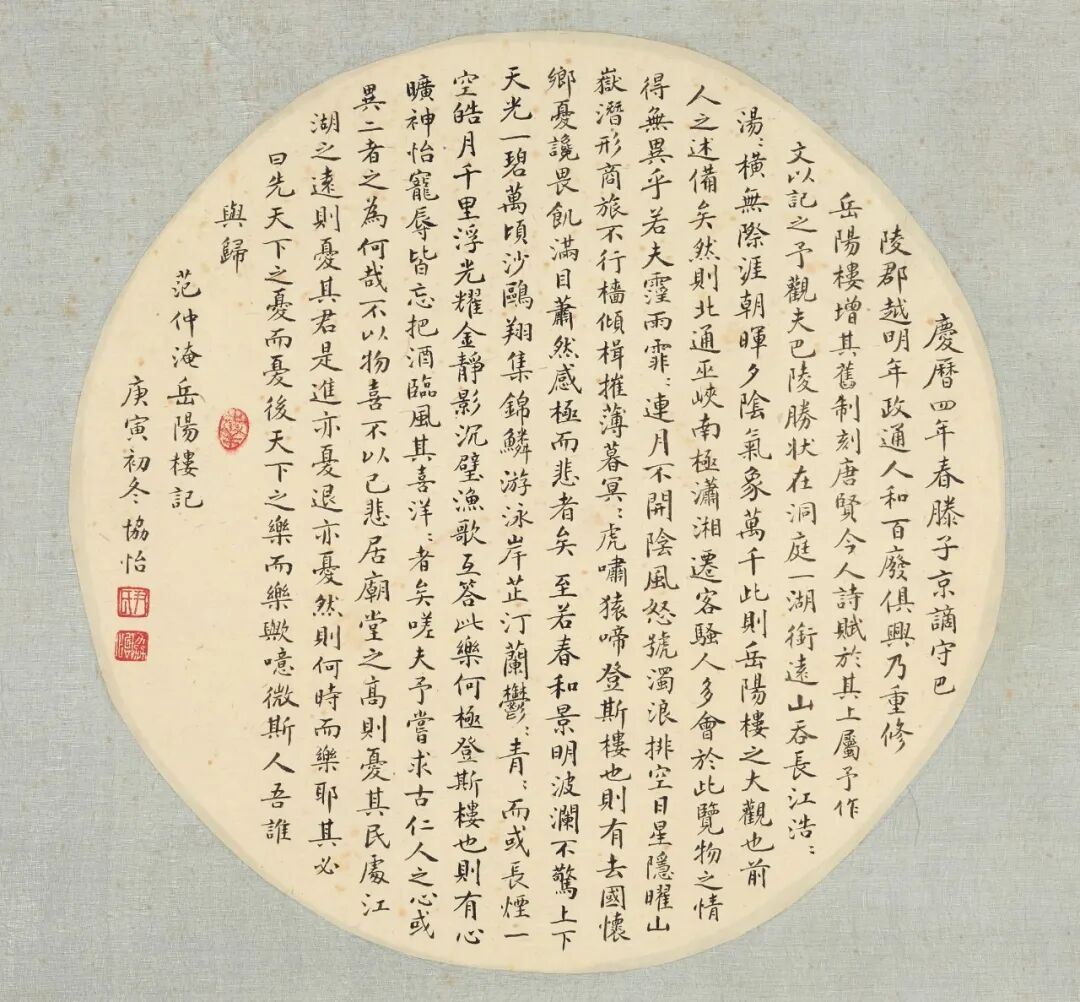 慶曆四年春滕子京謫守巴
陵郡越明年政通人和百廢俱興乃重修
岳陽樓增其舊制刻唐賢今人詩賦於其上屬予作
文以記之予觀夫巴陵勝狀在洞庭一湖銜遠山吞長江浩:
湯:橫無際涯朝暉夕陰氣象萬千此則岳陽樓之大觀也前
人之述備矣然則北通巫峽南極瀟湘遷客騷人多會於此覽物之情
得無異乎若夫霪雨霏:連月不開陰風怒號濁浪排空日星隱曜山
嶽潛形商旅不行檣傾楫摧薄暮冥:虎嘯猿啼登斯樓也則有去國懷
鄉憂讒畏飢滿目蕭然感極而悲者矣 至若春和景明波瀾不驚上下
天光一碧萬頃沙鷗翔集錦鱗游泳岸芷汀蘭鬱:青:而或長煙一
空皓月千里浮光耀金靜影沉璧漁歌互答此樂何極登斯樓也則有心
曠神怡寵辱皆忘把酒臨風其喜洋:者矣嗟夫予嘗求古仁人之心或
異二者之為何哉不以物喜不以己悲居廟堂之高則憂其民處江
湖之遠則憂其君是進亦憂退亦憂然則何時而樂耶其必
曰先天下之憂而憂後天下之樂而樂歟噫微斯人吾誰
與歸
范仲淹岳陽樓記
庚寅初冬協怡